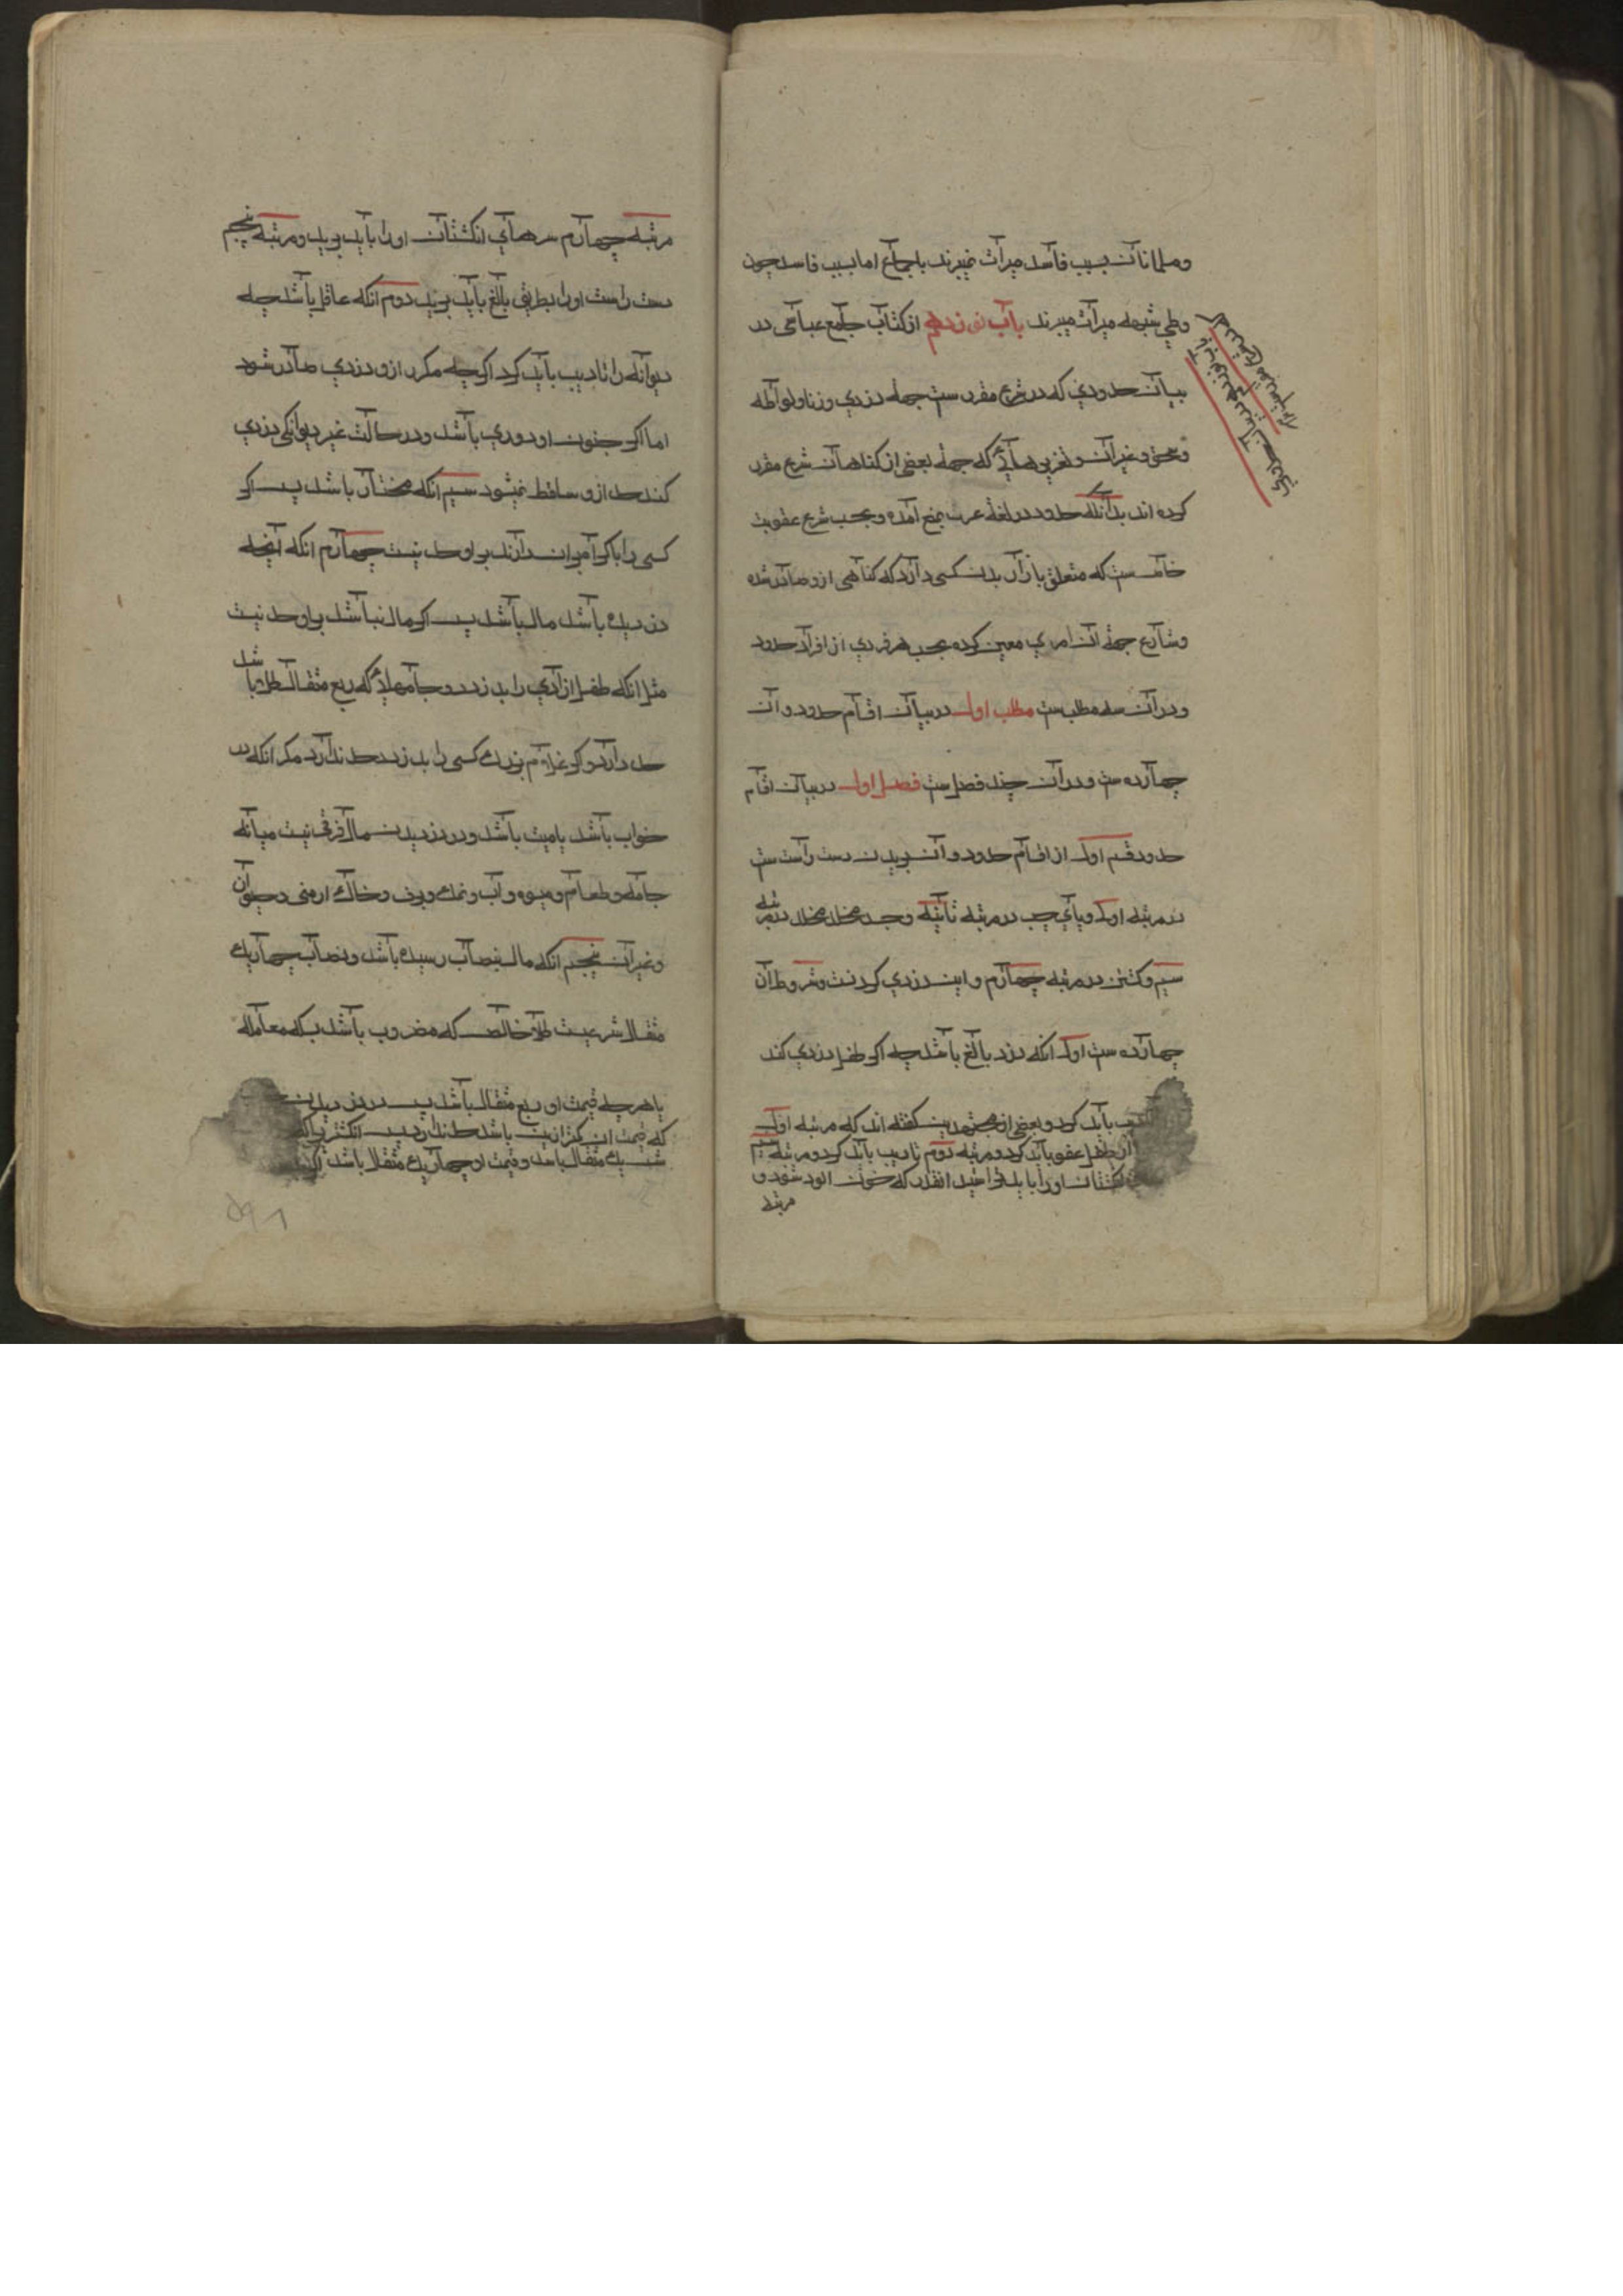 و مسلمانان بسبب فاسد میراث نمیبرند باجماع اما بسبب فاسد چون
وطی شبهه میراث میبرند باب نوزدهم از کتاب جامع عباسی در
بیان حدودی که در شرع مقررست جهة دزدی و زنا و لواطه
و سحق و غیر آن و تعزیرهائی که جهة بعضی از کناهان شرع مقرر
کرده اند بدانکه حدود در لغة عرب بمنع آمده و بحسب شرع عقوبت
خاصست که متعلق بازار بدن کسی دارد که کناهی ازو صادر شده
و شارع جهة آن امری معین کرده بحسب هر فردی از افراد حدود
و در آن سه مطلب ست مطلب اول در بیان اقسام حدود و آن
چهارده ست و در آن چند فصل ست فصل اول در بیان اقسام
حدود قسم اول از اقسام حدود و آن بریدن دست راست ست
در مرتبه اول و پای چپ در مرتبه ثانیه و حبس مخلد در مرتبه
سیم و کشتن در مرتبه چهارم و این دزدی کردنست و شروط آن
چهارده ست اول انکه دزد بالغ باشد چه اکر طفل دزدی کند
باید کرد و بعضی از مجتهدین کفته اند که مرتبه اول
آن طفل عفو باید کرد و مرتبه دوم تادیب باید کرد و مرتبه سیم
انکشتان او را باید خراشید انقدر که خون الود شود و
مرتبه
مرتبه چهارم سرهای انکشتان او را باید برید و مرتبه پنجم
دست راست او را بطریق بالغ باید برید دوم انکه عاقل باشد چه
دیوانه را تادیب باید کرد اکر چه مکرر ازو دزدی صادر شود
اما اکر جنون او دوری باشد و در حالت غیر دیوانکی دزدی
کند حد ازو ساقط نمیشود سیم انکه مختار باشد پس اکر
کسی را باکراه بران دارند برو حد نیست چهارم انکه آنچه
دزدیده باشد مال باشد پس اکر مال نباشد برو حد نیست
مثل انکه طفل ازادی را بدزدد و جامهائی که ربع مثقال طلا باشد
حد دارد و اکر غلام بزرک کسی را بدزدد حد ندارد مکر انکه در
خواب باشد یا میت باشد و در دزدیدن مال فرقی نیست میانه
جامه و طعام و میوه و آب و نمک و برف و خاک ارمنی و حیوان
و غیر آن پنجم انکه مال بنصاب رسیده باشد و نصاب چهار یک
مثقال شرعیست طلا خالص که مضروب باشد بسکه معامله
یا هر چه قیمت او ربع مثقال باشد پس در دزدیدن
که قیمت ان کمتر ازین باشد حد ندارد پس انکشتری که
شش یک مثقال باشد و قیمت او چهار یک مثقال باشد اکر